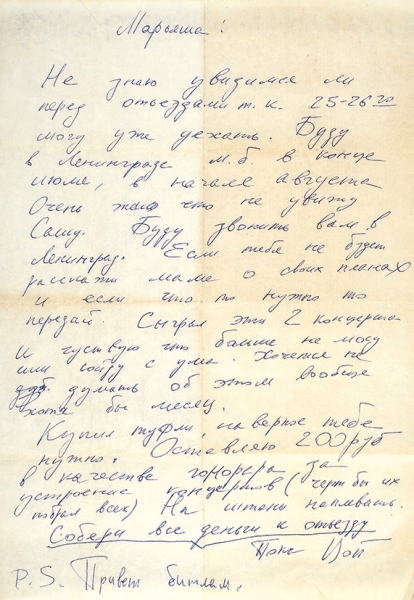 Марьяша!
Не знаю увидимся ли
перед отъездами т.к. 25-26го
могу уже уехать. Буду
в Ленинграде м.б. в конце
июля, в начале августа
Очень жаль что не увижу
Сашу. Буду звонить вам в
Ленинград. Если тебя не будет
расскажи маме о своих планах
и если что-то нужно то
передай. Сыграл эти 2 концерта
и чуствую что больше не могу
или сойду с ума. Хочется не
думать об этом вообще
хотя бы месяц.
Купил туфли, наверное тебе
нужно. Оставляю 200 руб
в качестве гонорара за
устроение концертов (черт бы их
побрал всех) На штаны наплевать.
Собери все деньги к отъезду
Пока Цой
P.S. Привет битлам.